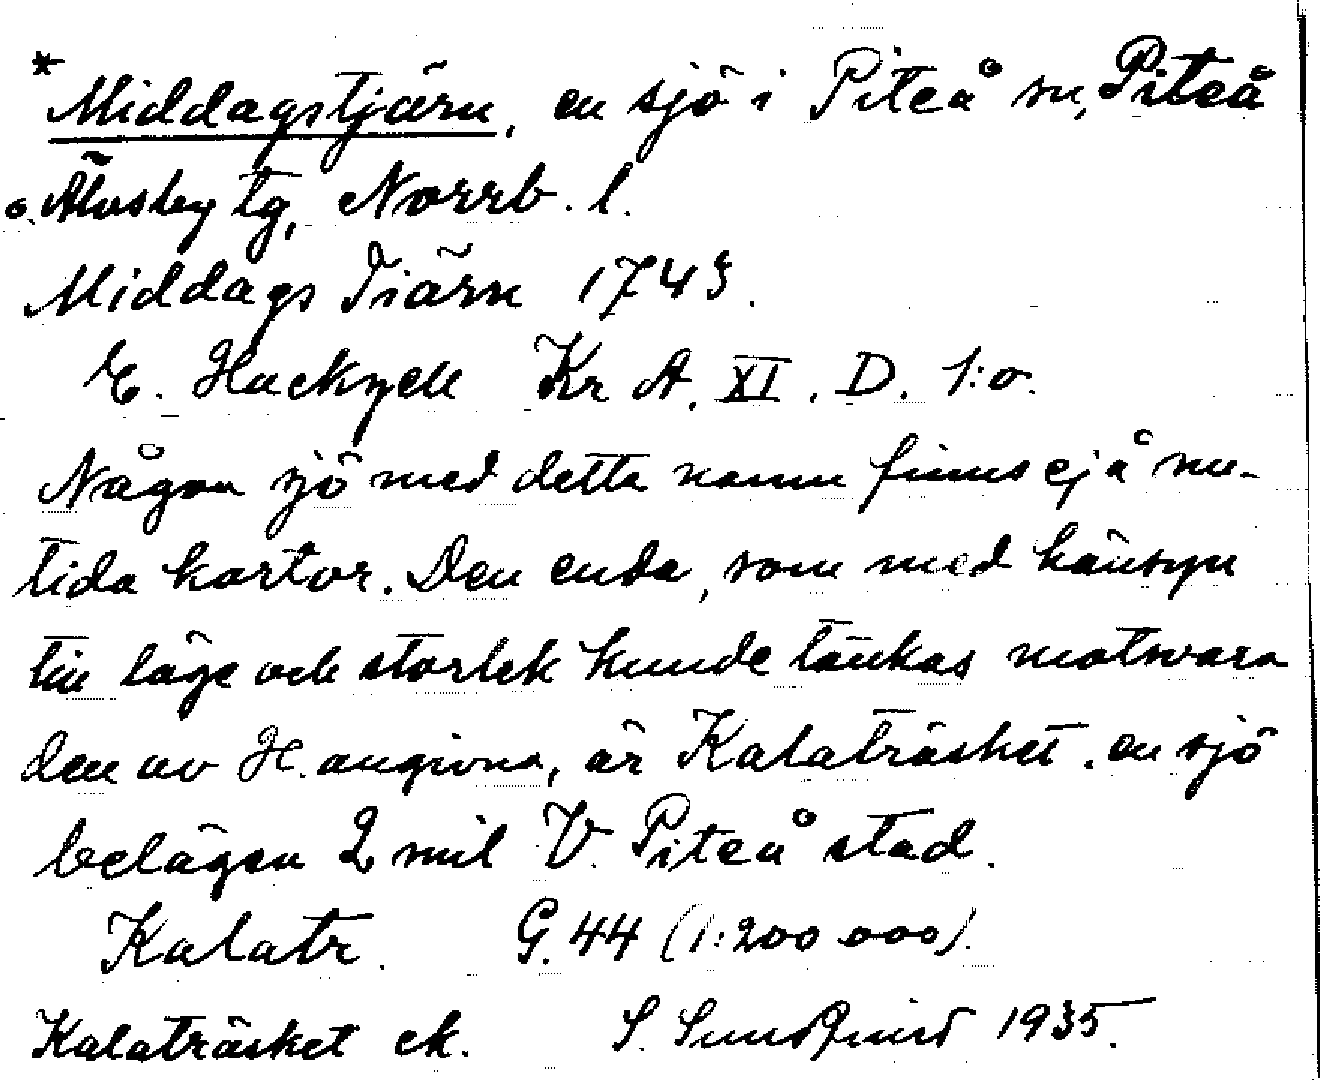 * Middagstjärn, en sjö i Piteå sn, Piteå
o. Älvsby tg, Norrb. l.
Middags Tiärn 1743.
E. Hackzell Kr A. XI. D. 1:o.
Någon sjö med detta namn finns ej å nu-
tida kartor. Den enda, som med hänsyn
till läge och storlek kunde tänkas motsvara
den av H. angivna, är Kalaträsket, en sjö
belägen 2 mil V. Piteå stad.
Kalatr. G. 44 (1:200 000).
Kalaträsket ek. S. Sundqvist 1935.